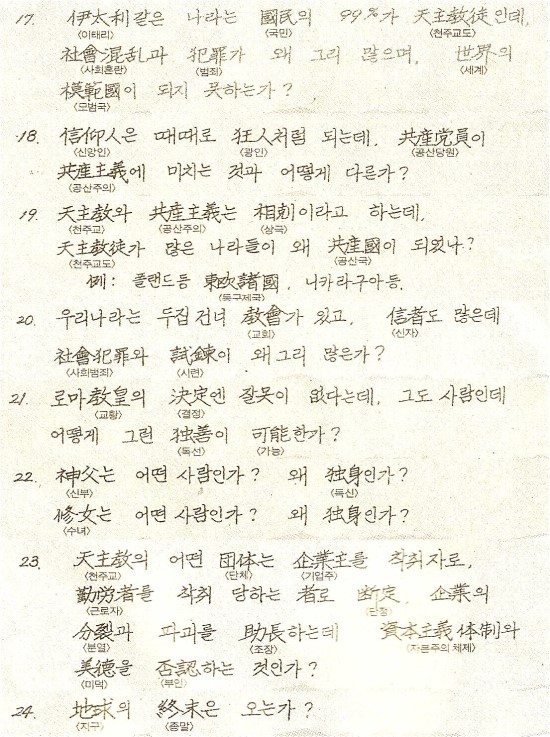 17. 伊太利같은 나라는 國民의 99%가 天主教徒인데,
〈이태리〉 〈국민〉 〈천주교도〉
社會混乱과 犯罪가 왜 그리 많으며, 世界의
〈사회혼란〉 〈범죄〉 〈세계〉
模範國이 되지 못하는가?
〈모범국〉
18. 信仰人은 때때로 狂人처럼 되는데, 共産党員이
〈신앙인〉 〈광인〉 〈공산당원〉
共産主義에 미치는 것과 어떻게 다른가?
〈공산주의〉
19. 天主教와 共産主義는 相剋이라고 하는데,
〈천주교〉 〈공산주의〉 〈상극〉
天主教徒가 많은 나라들이 왜 共産國이 되었나?
〈천주교도〉 〈공산국〉
例: 폴랜드등 東欧諸國, 니카라구아등.
〈동구제국〉
20. 우리나라는 두집 건너 教會가 있고, 信者도 많은데
〈교회〉 〈신자〉
社會犯罪와 試鍊이 왜 그리 많은가?
〈사회범죄〉 〈시련〉
21. 로마教皇의 決定엔 잘못이 없다는데, 그도 사람인데
〈교황〉 〈결정〉
어떻게 그런 独善이 可能한가?
〈독선〉 〈가능〉
22. 神父는 어떤 사람인가? 왜 独身인가?
〈신부〉 〈독신〉
修女는 어떤 사람인가? 왜 独身인가?
〈수녀〉
23. 天主教의 어떤 団体는 企業主를 착취자로,
〈천주교〉 〈단체〉 〈기업주〉
勤労者를 착취 당하는 者로 断定, 企業의
〈근로자〉 〈단정〉
分裂과 파괴를 助長하는데 資本主義 体制와
〈분열〉 〈조장〉 〈자본주의 체제〉
美德을 否認하는 것인가?
〈미덕〉 〈부인〉
24. 地球의 終末은 오는가?
〈지구〉 〈종말〉